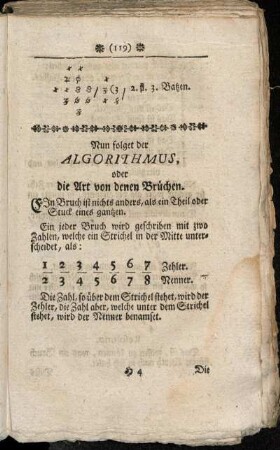 (119)
2. fl. 3. Batzen.
Nun folget der
ALGORITHMUS,
oder
die Art von denen Brüchen.
EIn Bruch ist nichts anders, als ein Theil oder
Stuck eines gantzen.
Ein jeder Bruch wird geschriben mit zwo
Zahlen, welche ein Strichel in der Mitte unter-
scheidet, als:
1 2 3 4 5 6 7 Zehler.
2 3 4 5 6 7 8 Nenner.
Die Zahl, so über dem Strichel stehet, wird der
Zehler, die Zahl aber, welche unter dem Strichel
stehet, wird der Nenner benamset.
H 4 Die